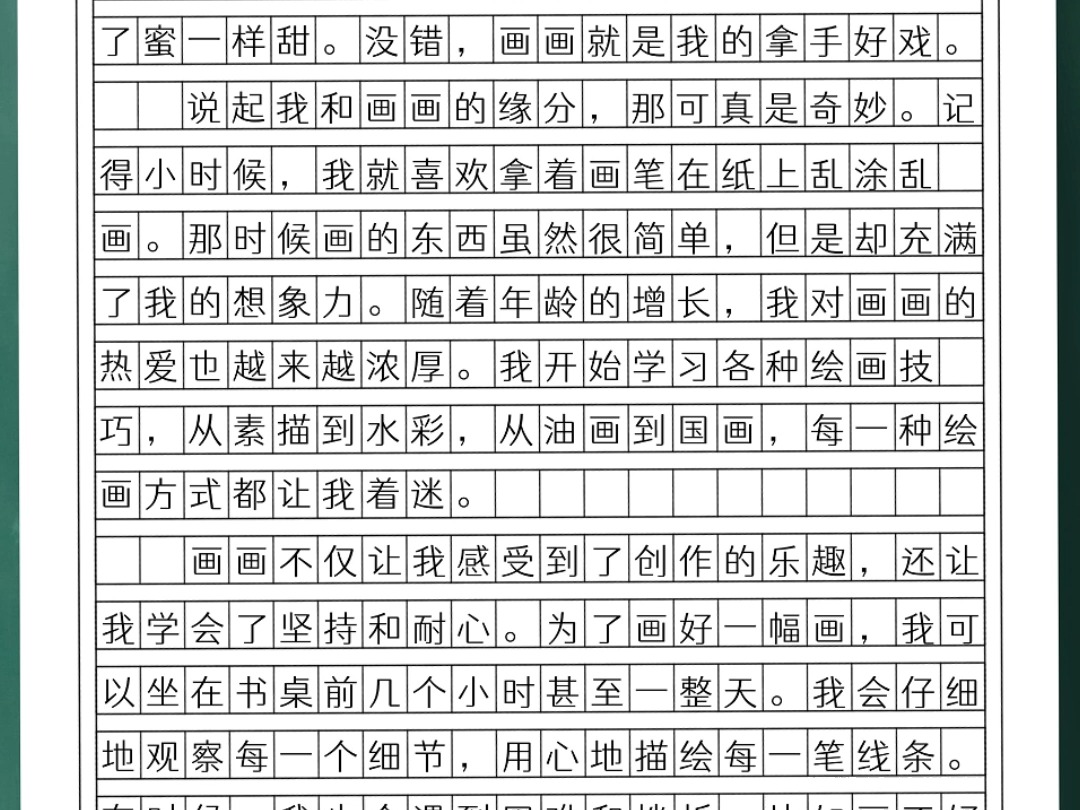 了蜜一样甜。没错，画画就是我的拿手好戏。
说起我和画画的缘分，那可真是奇妙。记
得小时候，我就喜欢拿着画笔在纸上乱涂乱
画。那时候画的东西虽然很简单，但是却充满
了我的想象力。随着年龄的增长，我对画画的
热爱也越来越浓厚。我开始学习各种绘画技
巧，从素描到水彩，从油画到国画，每一种绘
画方式都让我着迷。
画画不仅让我感受到了创作的乐趣，还让
我学会了坚持和耐心。为了画好一幅画，我可
以坐在书桌前几个小时甚至一整天。我会仔细
地观察每一个细节，用心地描绘每一笔线条。